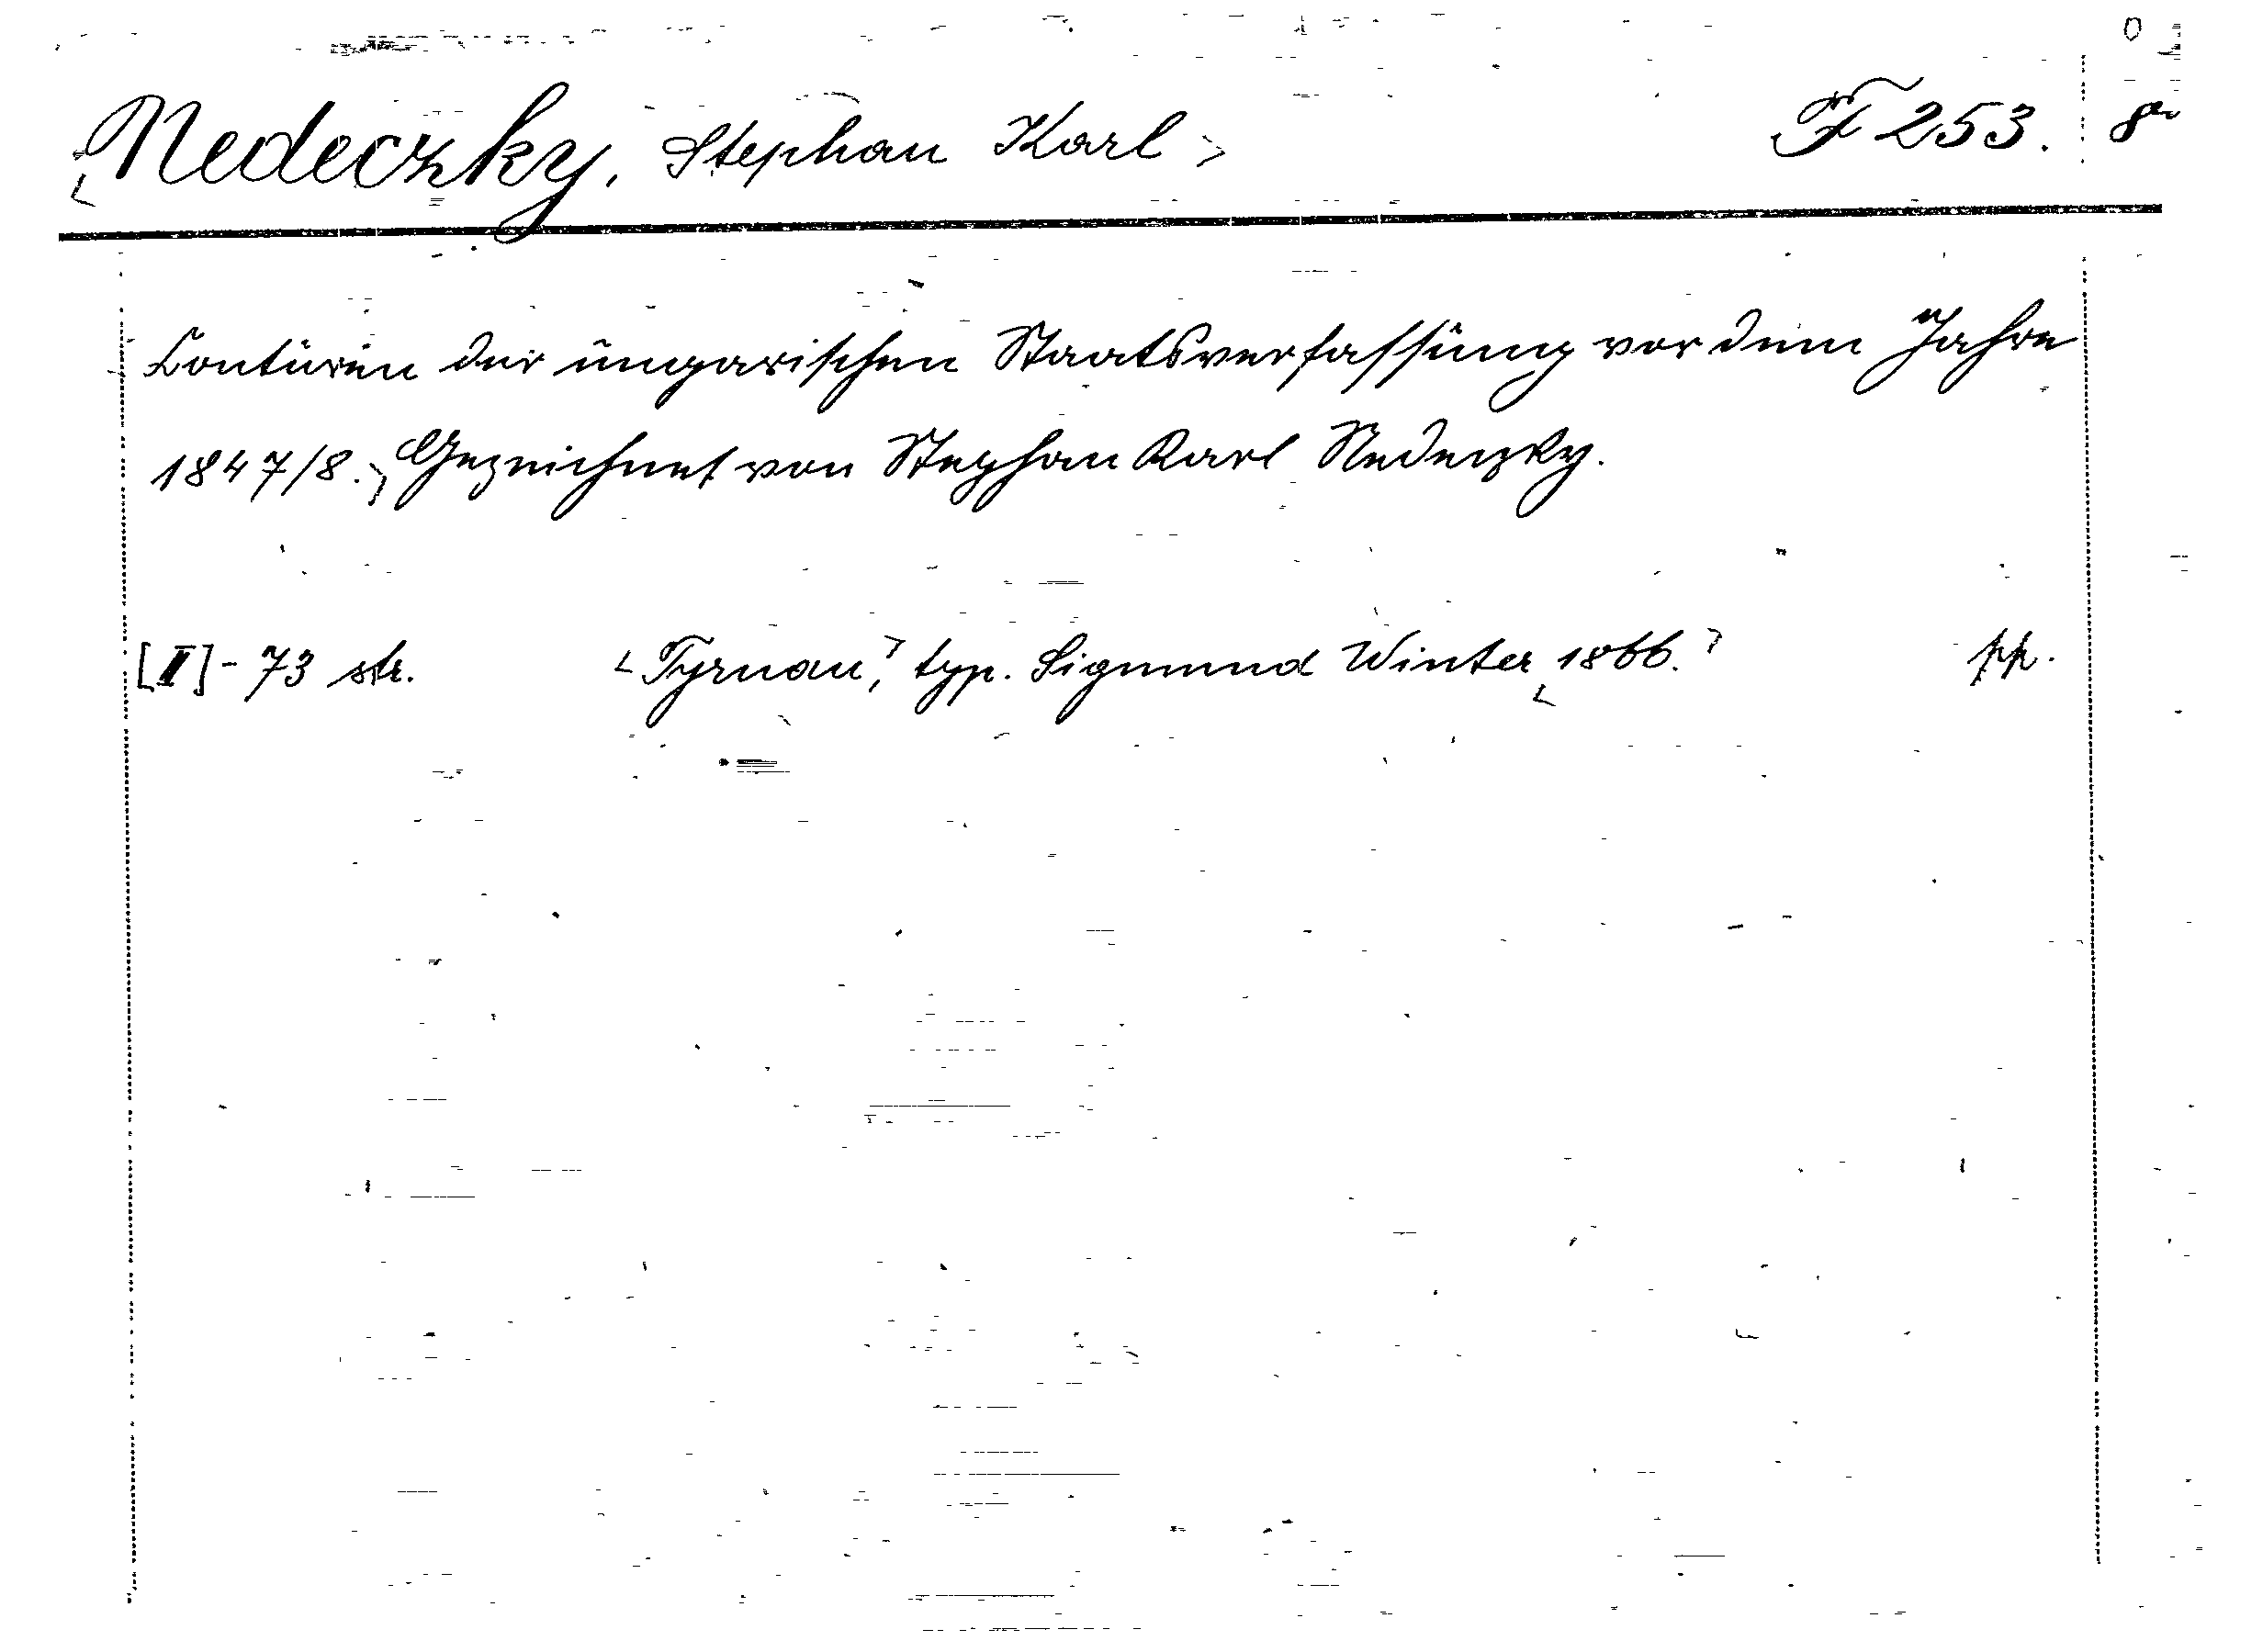 Nedeczky, Stephan Karl F 253. 8°
Contouren der ungarischen Staatsverfassung vor dem Jahre
1847/8. Gezeichnet von Stephan Karl Nedeczky.
[I]-73 str. Tyrnau, typ. Sigmund Winter 1866. pp.